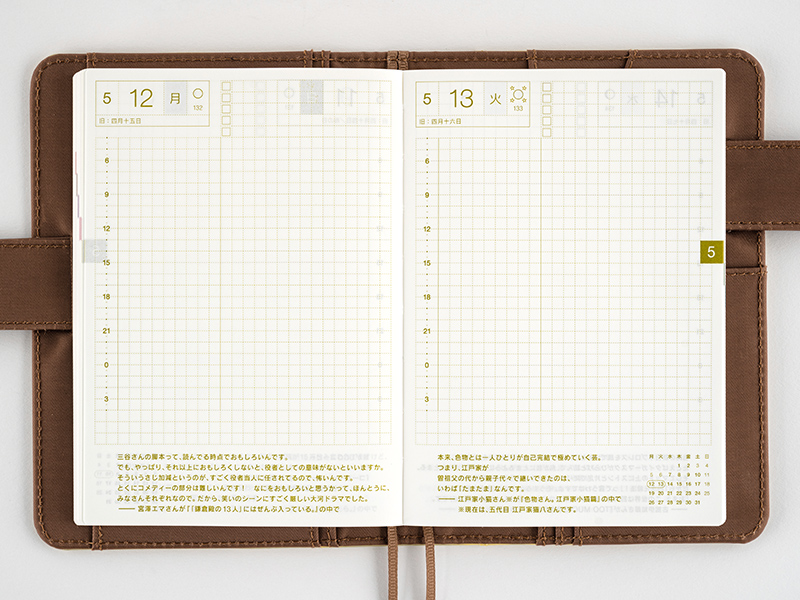 5 12 月 132
旧：四月十五日
6
9
12
15
18
21
0
3
三谷さんの脚本って、読んでる時点でおもしろいんです。
でも、やっぱり、それ以上におもしろくしないと、役者としての意味がないといいますか。
そういうさじ加減というのが、すごく役者当人に任されてるので、怖いんです。
とくにコメディーの部分は難しいんです！　なにをおもしろいと思うかって、ほんとうに、
みなさんそれぞれなので。だから、笑いのシーンにすごく厳しい大河ドラマでした。
―― 宮澤エマさんが『「鎌倉殿の13人」にはぜんぶ入っている。』の中で
5 13 火 133
旧：四月十六日
6
9
12
15
18
21
0
3
5
本来、色物とは一人ひとりが自己完結で極めていく芸。
つまり、江戸家が
曾祖父の代から親子代々で継いできたのは、
いわば「たまたま」なんです。
―― 江戸家小猫さん※が『色物さん。江戸家小猫篇』の中で
※現在は、五代目 江戸家猫八さんです。
月 火 水 木 金 土 日
1 2 3 4
5 6 7 8 9 10 11
12 13 14 15 16 17 18
19 20 21 22 23 24 25
26 27 28 29 30 31